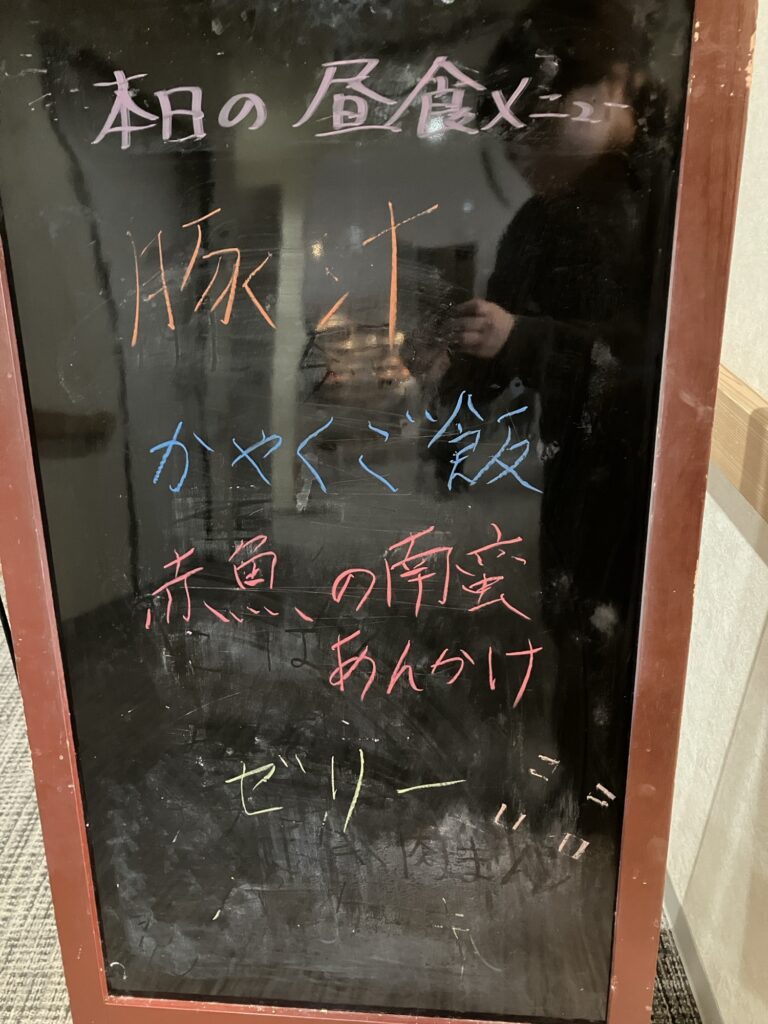 本日の昼食メニュー
豚汁
かやくご飯
赤魚の南蛮
あんかけ
ゼリー